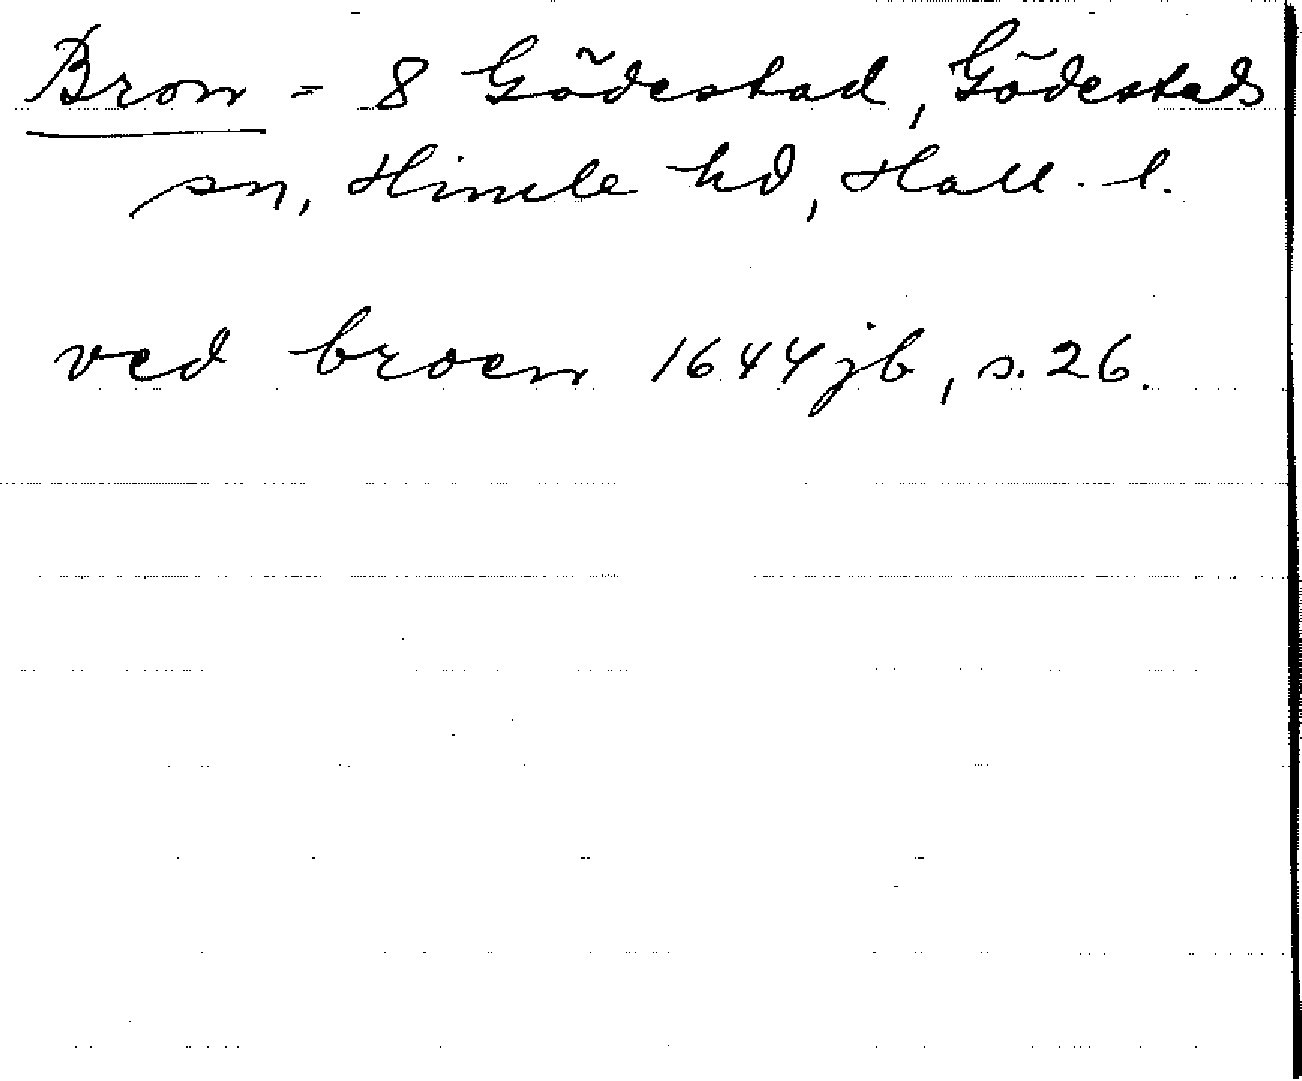 Bron = 8 Gödestad, Gödestads
sn, Himle hd, Hall. l.
ved broen 1644 jb, s. 26.